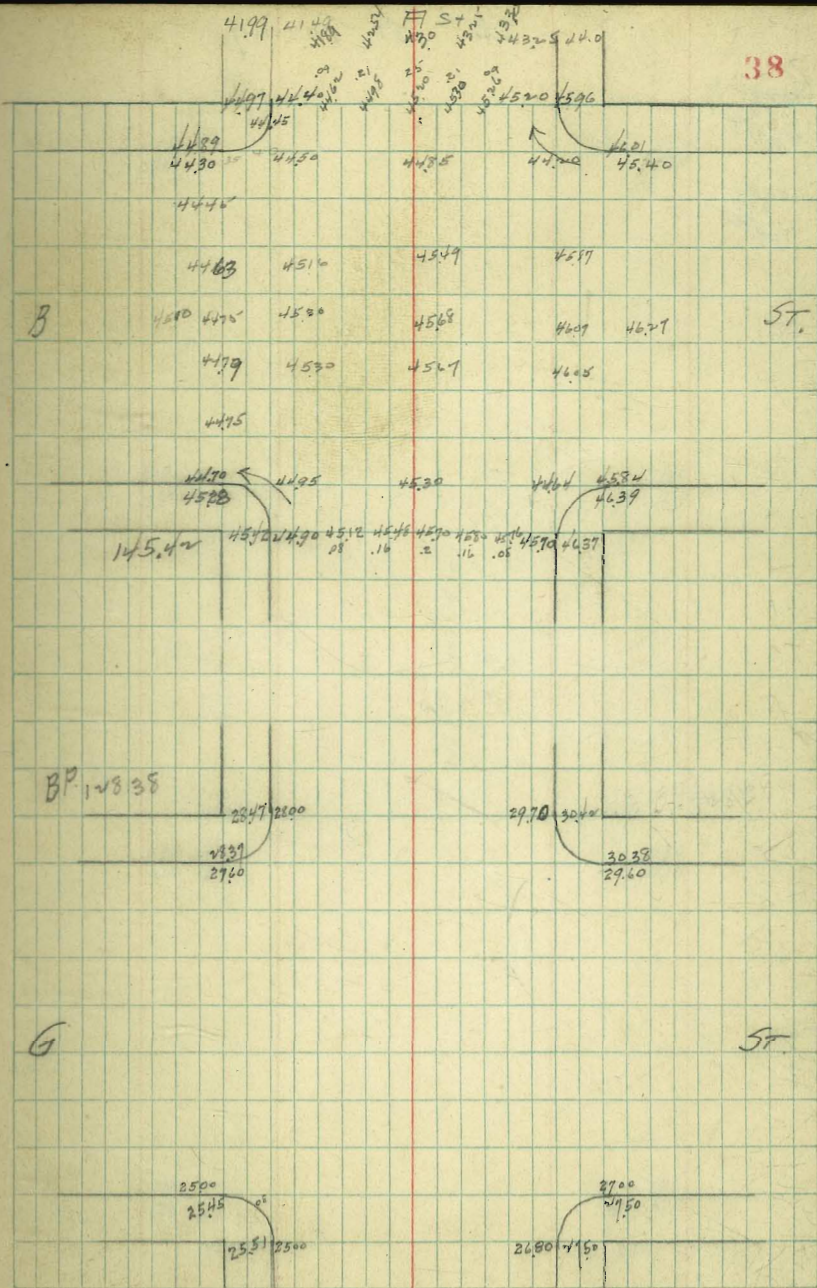 41.99 41.49 41.89 42.54 43.0 43.25 44.325 44.0
A St
38
44.97 44.40 44.62 44.95 45.20 45.30 45.26 45.20 45.96
.09 .21 25 .21 09
44.45
44.89 46.01
44.30 44.50 44.85 44.20 45.40
44.45
44.63 45.16 45.49 45.87
B 45.10 44.75 45.30 45.68 46.07 46.27 ST.
44.79 45.30 45.67 46.05
44.75
44.70 44.95 45.30 44.64 45.84
45.28 46.39
145.42 45.42 44.90 45.12 45.45 45.70 45.80 45.76 45.70 46.37
08 .16 .2 .16 .08
BP. 128.38
28.47 28.00 29.70 30.42
28.37 30.38
27.60 29.60
G ST.
25.00 27.00
25.45 27.50
25.51 25.00 26.80 27.50